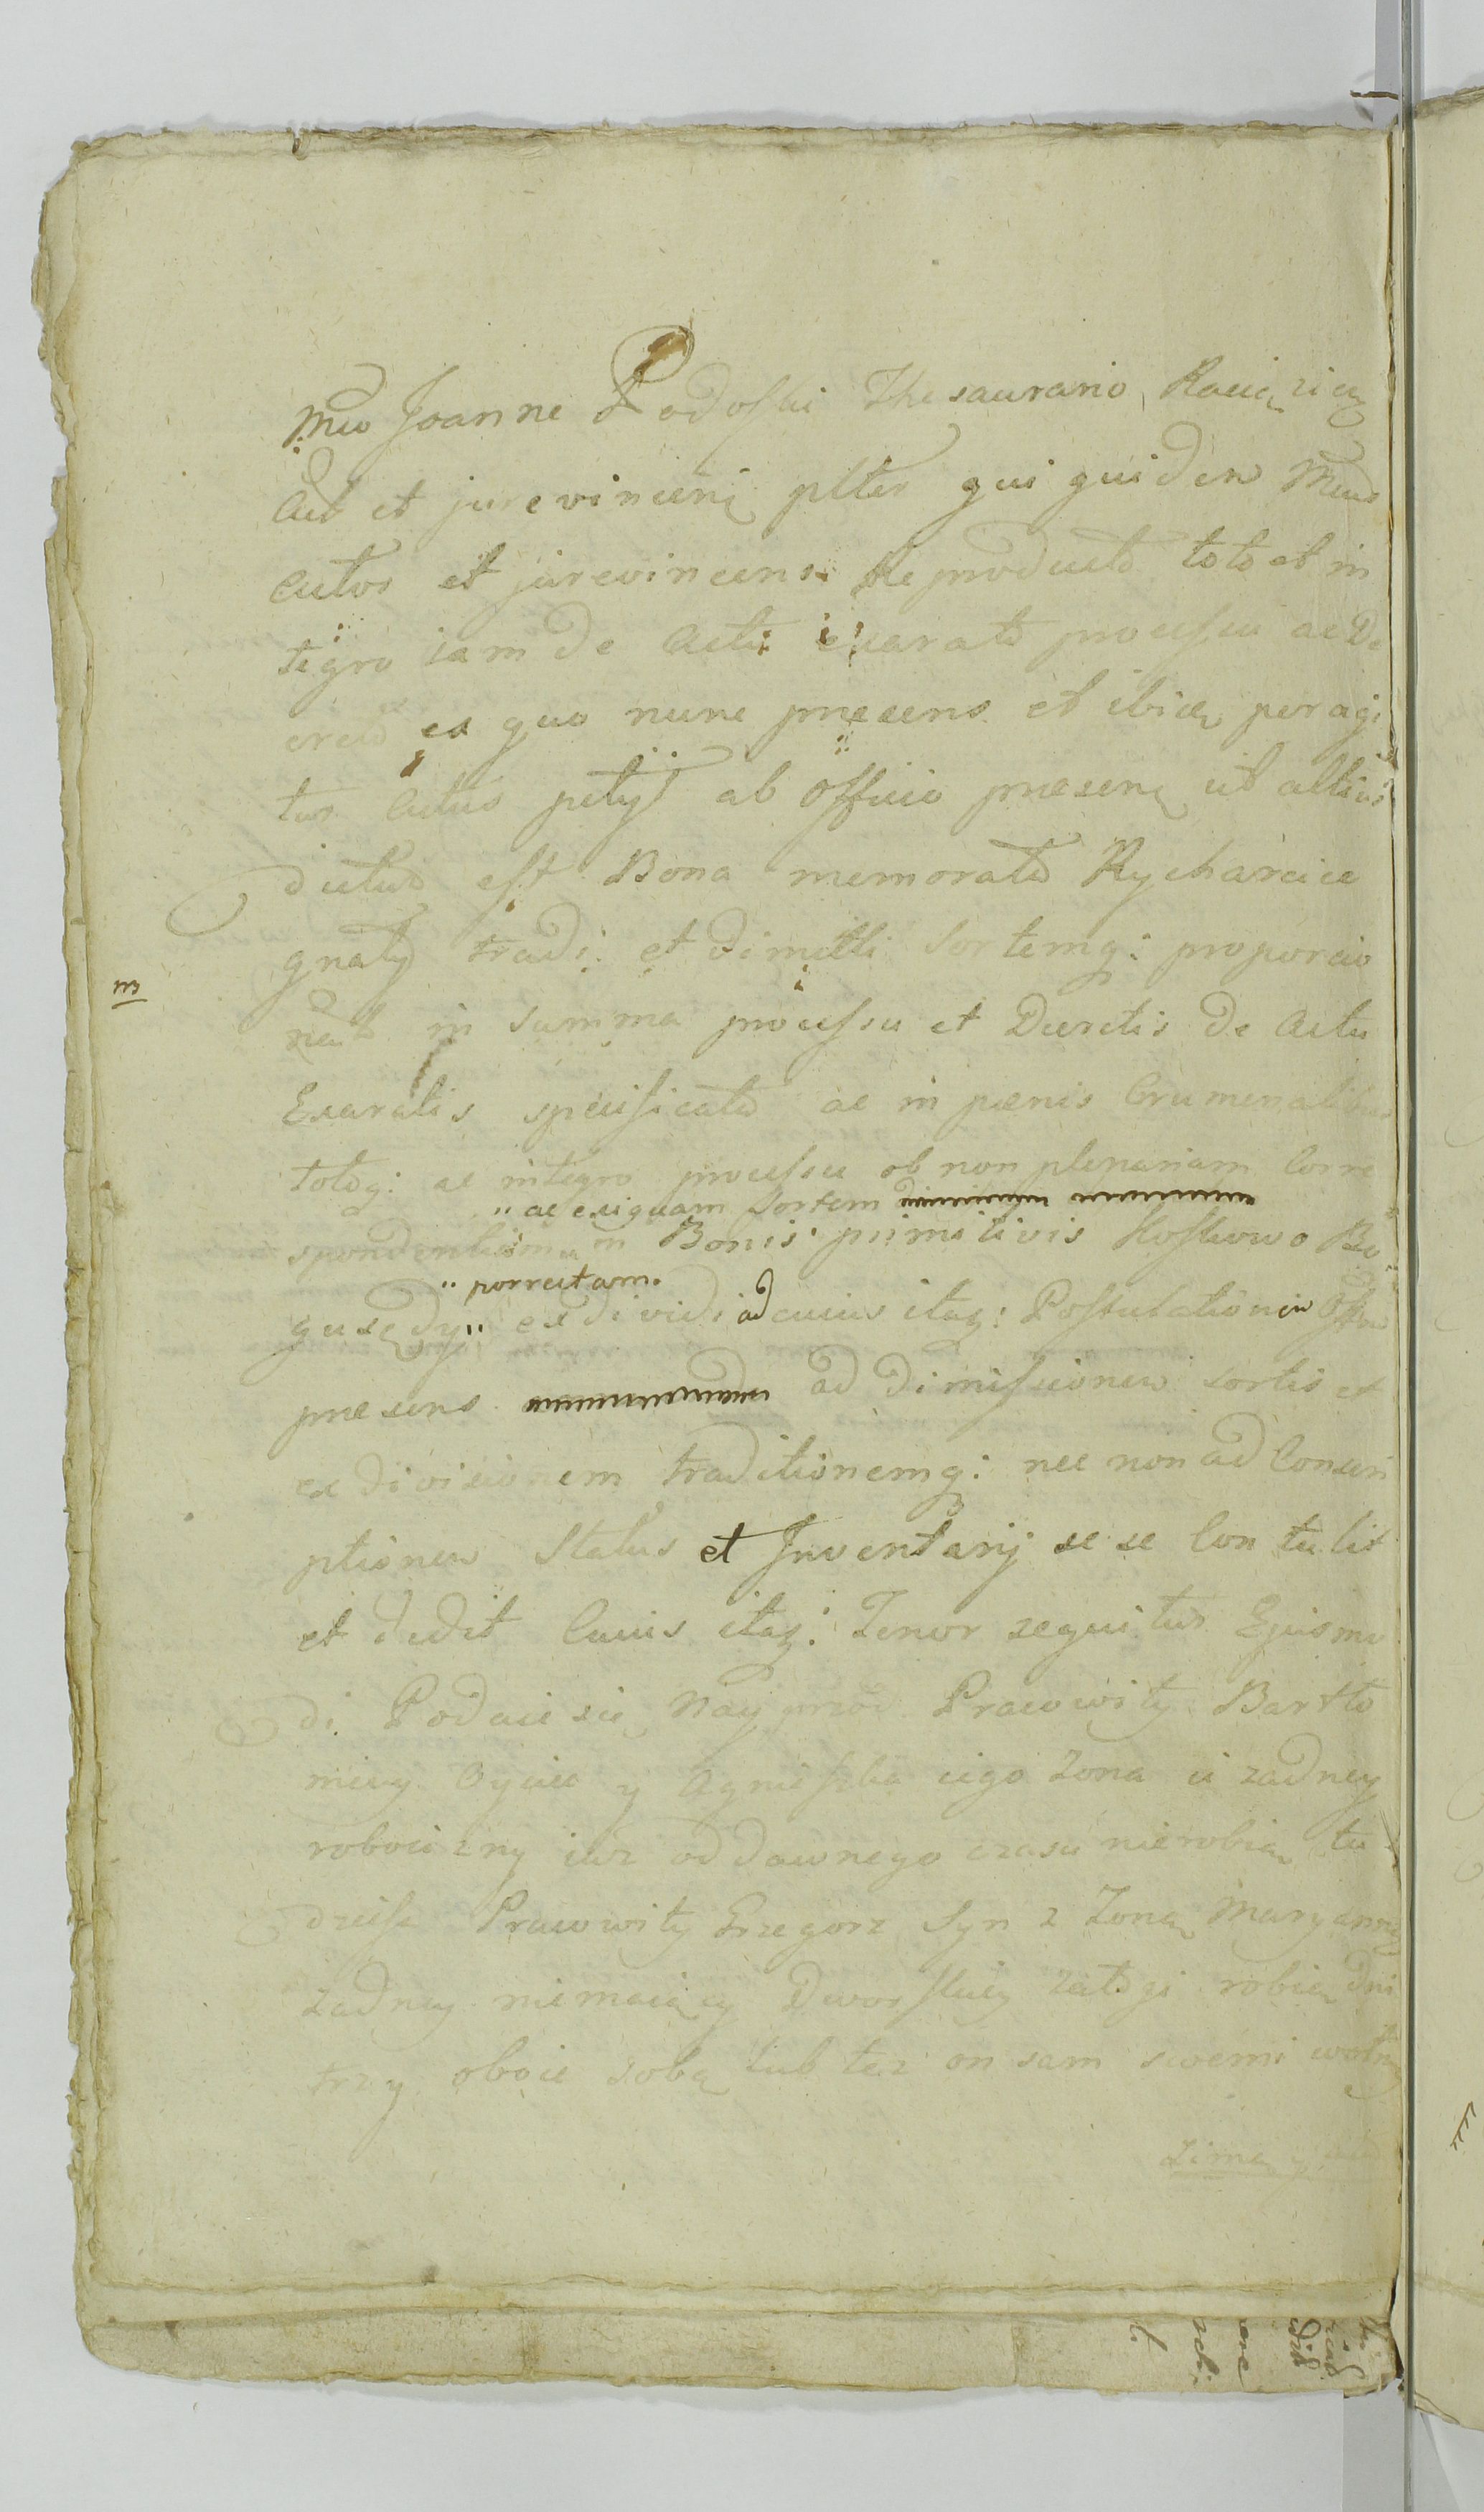 Mco Joanne Podoski Thesaurario Raciązien
Act et jurevincenę plter qui quidem Mcus
Actor et jurevincens Reproducto toto et in
tegro iam de Actu exarato processu ac De
creto ex quo nunc praesens et ibiem peragi
tur Actus petyt ab Officio praesenę ut altius
dictum est Bona memorata Rycharcice
gnaty tradi et dimitti Sortemq: proporcio
nem in Summa processu et Decretis de Actu
Exaratis specificata ac in paenis Crumenalibus
totoq: ac integro processu ob non plenariam Corre
" ac exiguam Sortem
spondentiam in Bonis primitivis Kossewo Bo
" porrectam.
guszędy" exdividi ad cuius itaq: Postulationem Offm
praesens ad Dimissionem sortis et
ex divisionem traditionemq: nec non ad Conscri
ptionem Status et Inventarij se se Contulit
et dedit Cuius itaq: Tenor sequitur Ejusmo
di Podaie się Nayprzod Pracowity Bartło
mieey Oyciec y Agnieszka iego Zona ci zadney
robocizny iuz oddawnego czasu nierobią tu
dziesz Pracowity Grzegorz Syn z Zoną Maryanną
zadney niemaiący Dworskiey załogi robią dni
trzy oboie sobą lub tez on sam swemi wołmi
zimą y
m